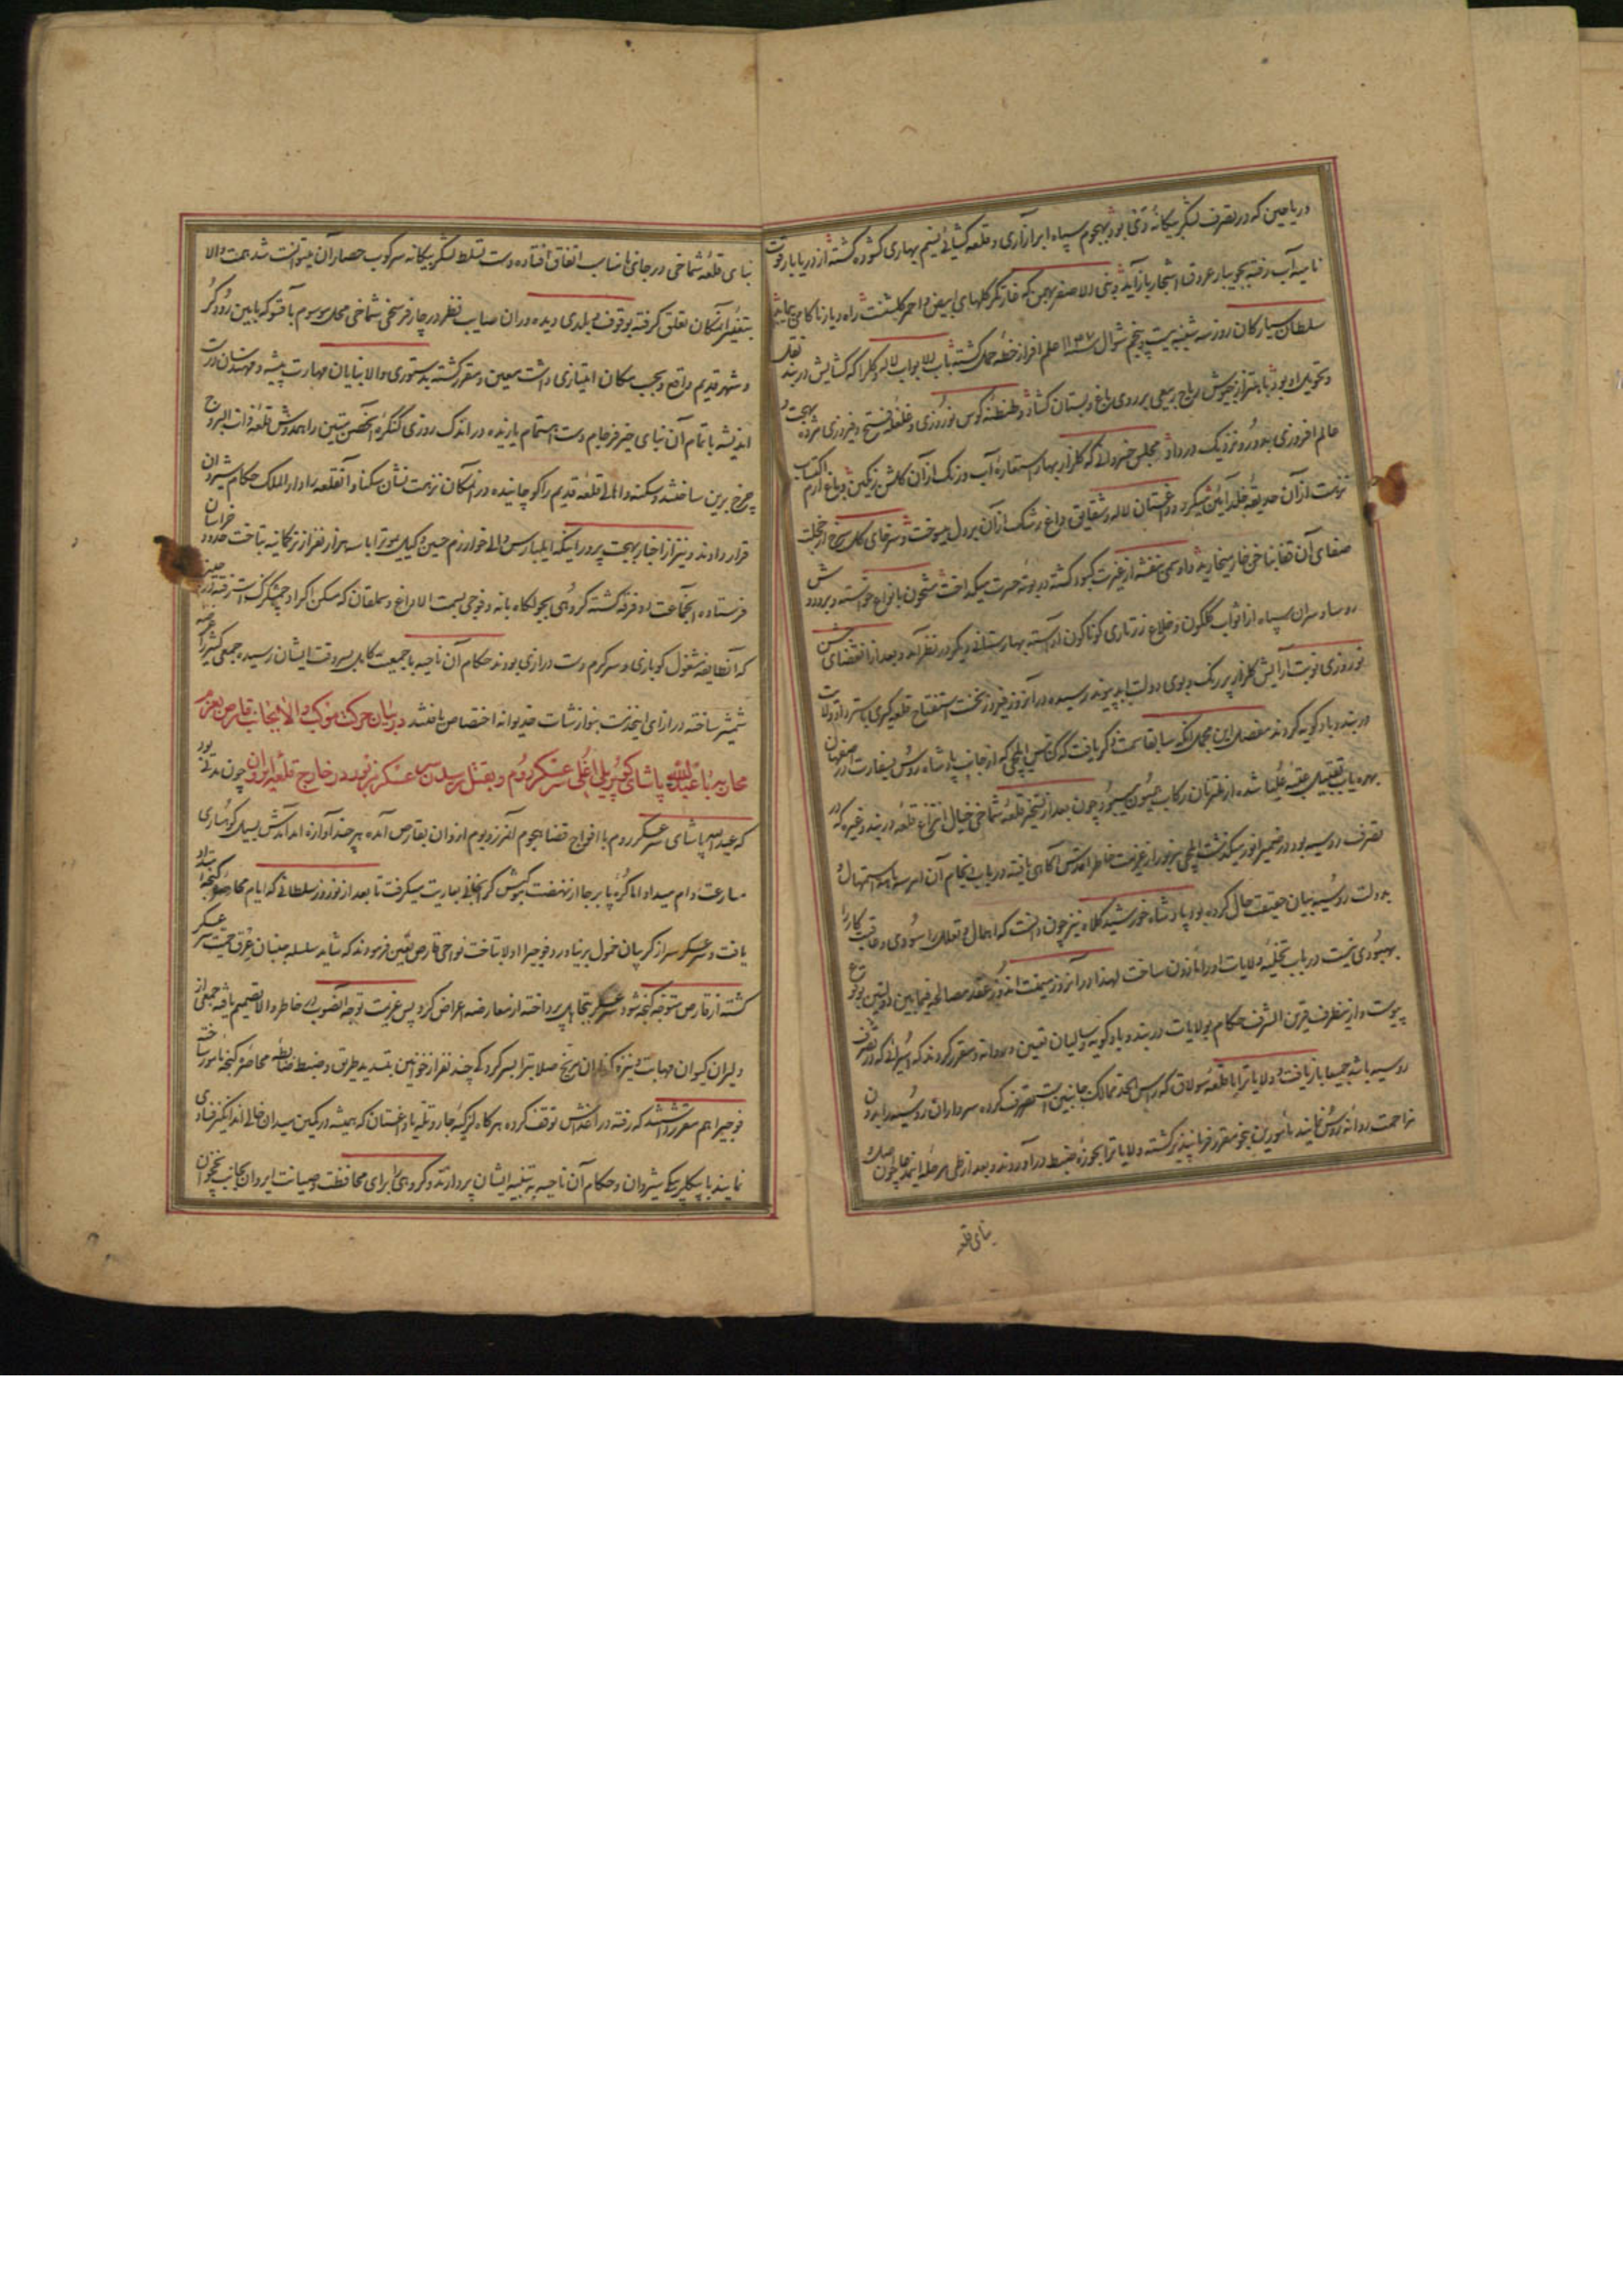 و ریاحین که در تصرف لشکر بیکانهٔ دی بود بهجوم سپاه ابر آزاری و قلعه کشائی نسیم بهاری کشوده کشته از دریابار قوت
نامیه آب رفته بجویبار عروق اشجار باز آید و بنی الاصفر بهمن که غارتکر کلهای ابیض و احمر کلشنست راه دیار ناکامی پیماید
سلطان سیارکان روز سه شنبه بیست و پنجم شوال سنه ۱۱۴۷ علم افراز خطهٔ حمل کشته باب الابواب لاله و کلرا که کشایش دربند نقل
و تحویل او بود با هتزاز جیوش ریاح ربیعی بر روی باغ و بستان کشاد و طنطنهٔ کوس نوروزی و غلغلهٔ فتح و فیروزی مژده بهجت و
عالم افروزی بدور و نزدیک در داد مجلس خسروانی که کلزار بهار استعارهٔ آب و رنک از آن کلشن رنکین و باغ ارم اکتساب
نزهت از آن حدیقهٔ خلد آیین میکرد و داغستان لاله و شقایق داغ رشک از آن بر دل میسوخت و سرخای کل سرخ از خجلت
صفای آن قفا بناخن خار میخارید و اوسمی بنفشه از غیرت کبود کشته در بوته حسرت میکداخت مشحون بانواع خواسته و بر دوش
روسا و سران سپاه از اثواب کلکون و خلاع زرتاری کوناکون آراسته بهارستانی دیکر در نظر آمد و بعد از انقضای جشن
نوروزی نوبت آرایش کلزار پر رنک و بوی دولت ابد پیوند رسیده در آن روز فیروز نخست استفتاح قلعه کبری باسترداد ولایت
دربند و بادکویه کردند مفصل این مجمل آنکه سابقا سمت ذکر یافت که کنیس ایلچی که از جانب پادشاه روس بسفارت در اصفهان
بهره یاب تقبیل عتبهٔ علیا شده از ملتزمان رکاب جیحون میبود چون بعد از تسخیر قلعه شماخی خیال انتزاع قلعه دربند و غیره که در
تصرف روسیه بود در ضمیر انور میکذشت ایلچی مزبور از عزیمت خاطر اقدس آکاهی یافته در باب انجام آن امر استمهال و
بدولت روسیه بیان حقیقت حال کرده بود پادشاه خورشید کلاه نیز چون دانست که اهمال و تعلل را سودی و عاقبت کار را
بهبودی نیست در باب تخلیهٔ ولایات او را مأذون ساخت لهذا در آنروز میمنت اندوز عقد مصالحه فیمابین دولتین بوقوع
پیوست و از منظر قرین الشرف حکام بولایات دربند و بادکویه و سالیان تعیین و روانه و مقرر کردند که اسرائی که در تصرف
روسیه باشد جمیعا بازیافت و ولایات را با قلعه سولاق که راس الحد ممالک جانبین است متصرف کرده سرداران روسیه را بدون
مزاحمت روانه روس نمایند مامورین بنحو مقرر فرمانپذیر کشته ولایات را بحوزهٔ ضبط در آوردند و بعد از طی مرحله اینمدعا چون اصل
بنای قلعه
بنای قلعهٔ شماخی در جائی نامناسب اتفاق افتاده دست تسلط لشکر بیکانه سرکوب حصار آن میتوانست شد همت والا
بتغییر آنمکان تعلق کرفته بوقوف و بلدی دیده وران صایب نظر در چار فرسخی شماخی محل موسوم بآقسو که مابین رود کر
و شهر قدیم واقع و بحسب مکان امتیازی داشت معین و مقرر کشته بدستوری والا بنایان مهارت پیشه و مهندسان درست
اندیشه باتمام آن بنای خیر فرجام دست اهتمام یازیده در اندک روزی کنکرهٔ آنحصن متین را همدوش قلعهٔ ذات البروج
چرخ برین ساختند و سکنه و اهالی قلعهٔ قدیم را کوچانیده در آنمکان نزهت نشان سکنا و آنقلعه را دار الملک حکام شیروان
قرار دادند و نیز از اخبار بهجت پرور اینکه ایلبارس والی خوارزم جمعی را با سه هزار نفر از ترکمانیه بتاخت حدود خراسان
فرستاده آنجماعت دو فرقه کشته کروهی بجولکاه بانه و فوجی بسمت الاداغ و سملقان که مسکن اکراد چمشکزک است رفته در حینی
که آنطایفه مشغول کوبازی و سرکرم دست درازی بودند حکام آن ناحیه با جمعیت مکابل بسر وقت ایشان رسیده جمعی کثیر را عرضه
شمشیر ساخته در ازای اینخدمت بنوازشات خدیوانه اختصاص یافتند در بیان حرکت موکب والا بجانب قارص بعزم
محاربه با عبدالله پاشای کوپریلی اغلی سر عسکر روم و بقتل رسیدن سر عسکر مزبور در خارج قلعه ایروان چون مدتی بود
که عبدالله پاشای سر عسکر روم با افواج قضا هجوم آنمرز و بوم از وان بقارص آمده هر چند آوازه آمدآمدش سیل کوهساری
مسارعت دام میداد اما کرهٔ پا بر جا از نهضت کوش کر انجا بعاریت میکرفت تا بعد از نوروز سلطانی که ایام محاصره کنجه امتداد
یافت و سر عسکر سر از کریبان خمول بر نیاورد فوجیرا اولا بتاخت نواحی قارص تعیین فرمودند که شاید سلسله جنبان عرق حمیت سر عسکر
کشته از قارص متوجه کنجه شود سر عسکر بتجاهل پرداخته از معارضه اعراض کرد پس عزیمت توجه آنصوب را خاطر والا تصمیم یافته جمعی از
دلیران کیوان مهابت و نیزه کذاران مریخ صلابت را بسرکردکی چند نفر از خوانین بتسدید طریق و ضبط ضابطه محاصره کنجه مامور ساخته
فوجیرا هم مقرر داشتند که رفته در اغداش توقف کرده هر کاه لزکیهٔ جار و تله یا داغستان که همیشه در کمین میدان خالی اند انکیز فسادی
نمایند با بیکلربیکی شیروان و حکام آن ناحیه به تنبیه ایشان پردازند و کروهی را برای محافظت و صیانت ایروان بجانب نخجوان